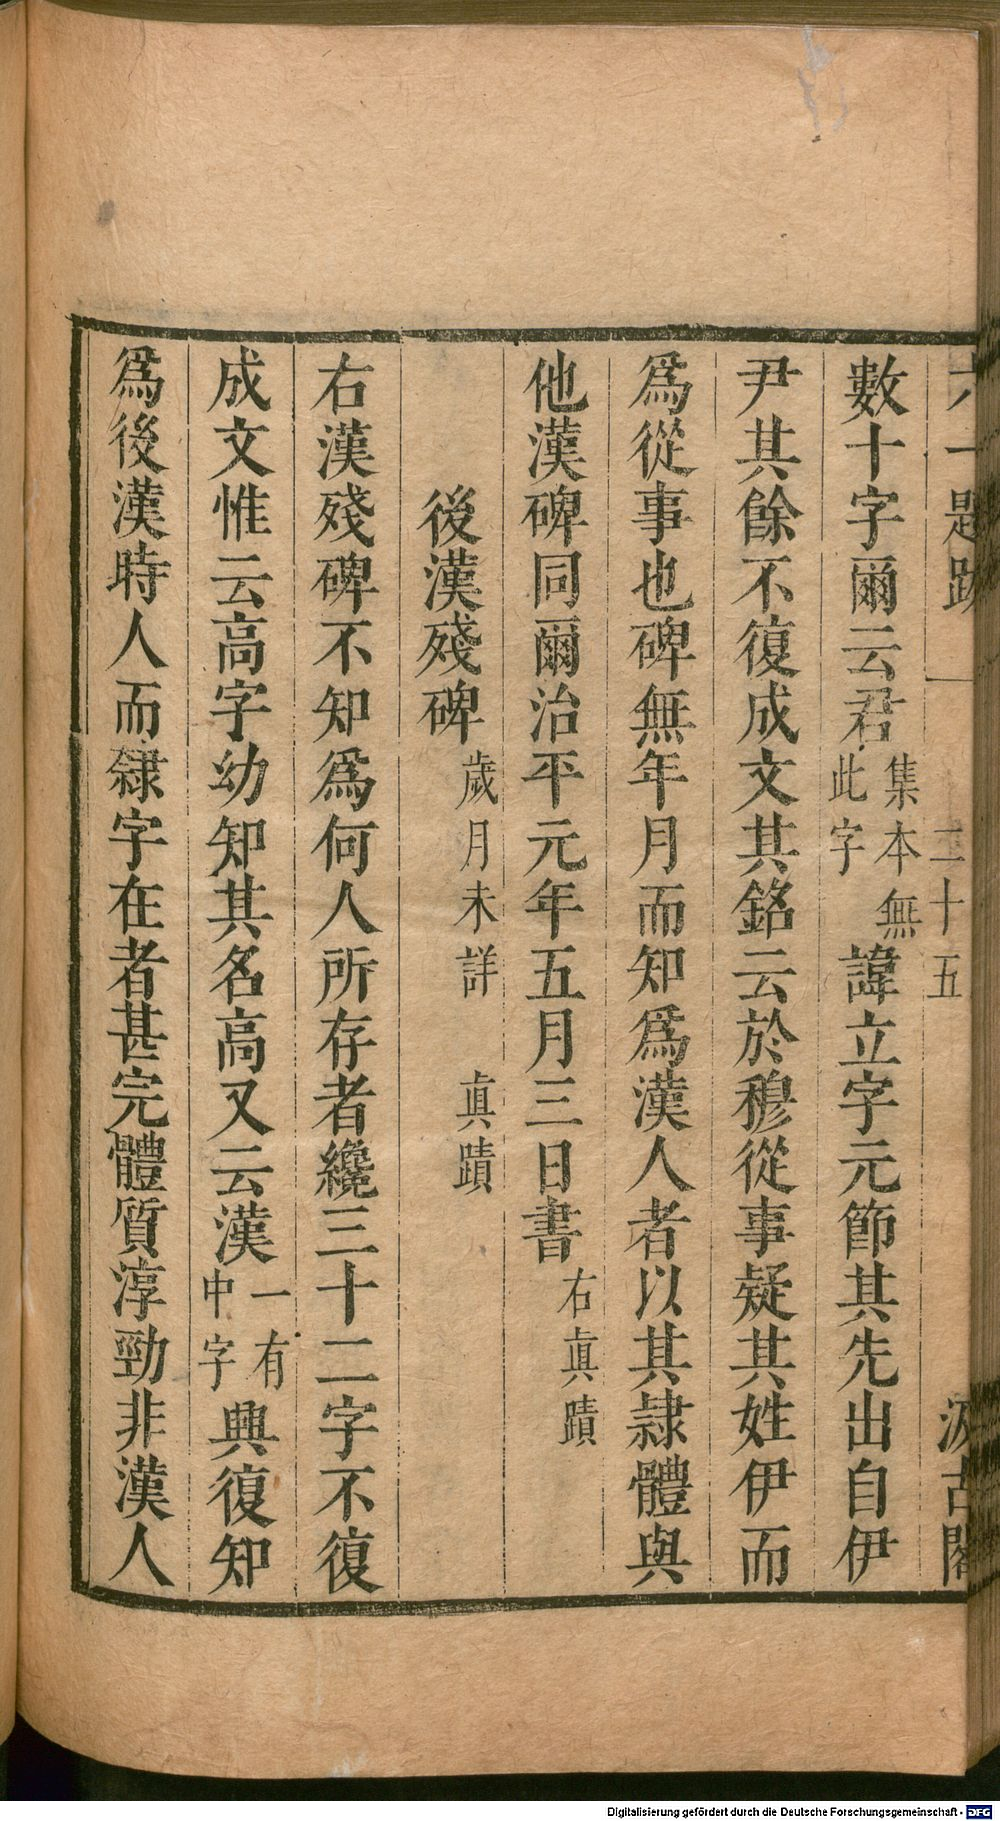 六一題跋 二十五 汲古閣
數十字爾云君集本無此字諱立字元節其先出自伊
尹其餘不復成文其銘云於穆從事疑其姓伊而
爲從事也碑無年月而知爲漢人者以其隸體與
他漢碑同爾治平元年五月三日書右眞蹟
後漢殘碑歲月未詳 眞蹟
右漢殘碑不知爲何人所存者纔三十二字不復
成文惟云高字幼知其名高又云漢一有中字興復知
爲後漢時人而隸字在者甚完體質淳勁非漢人
Digitalisierung gefördert durch die Deutsche Forschungsgemeinschaft - DFG